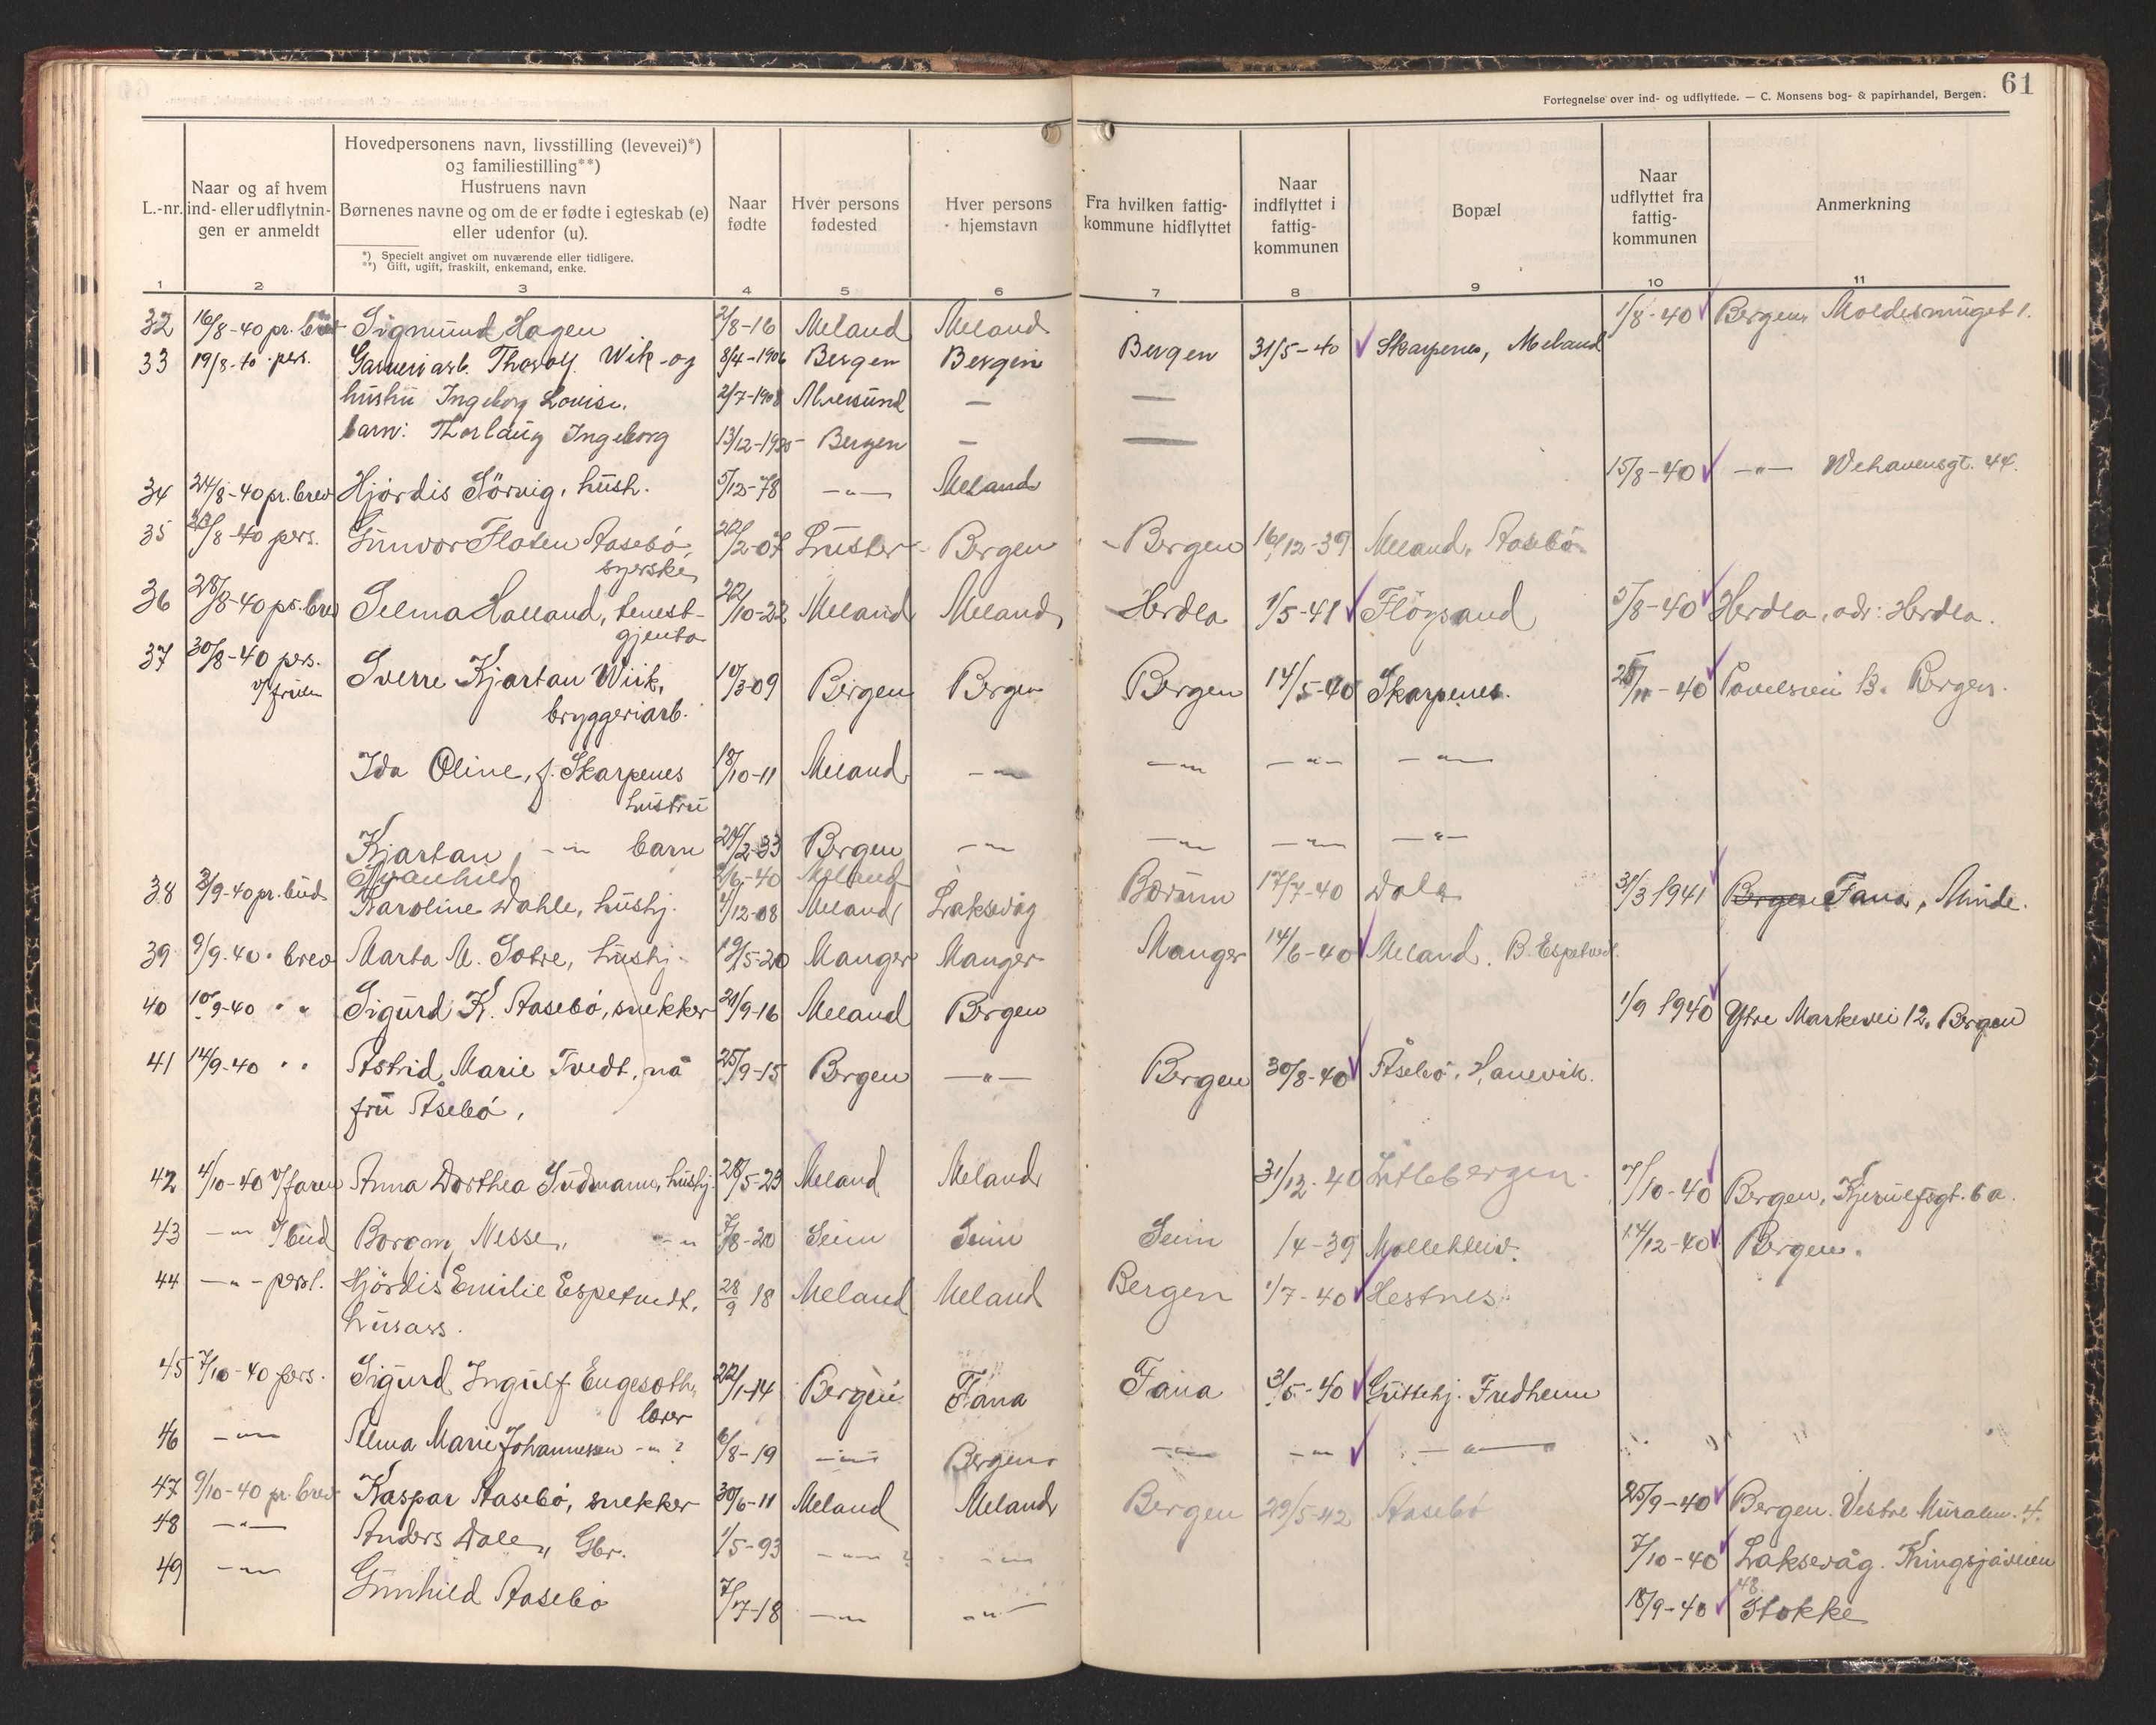 61
Fortegnelse over ind- og udflyttede. — C. Monsens bog- & papirhandel, Bergen.
L.-nr.
Naar og af hvem ind- eller udflytnin- gen er anmeldt
Hovedpersonens navn, livsstilling (levevei)*)
og familiestilling**)
Hustruens navn
Børnenes navne og om de er fødte i egteskab (e)
eller udenfor (u).
*) Specielt angivet om nuværende eller tidligere.
**) Gift, ugift, fraskilt, enkemand, enke.
Naar fødte
Hver persons fødested
Hver persons hjemstavn
Fra hvilken fattig- kommune hidflyttet
Naar indflyttet i fattig- kommunen
Bopæl
Naar udflyttet fra fattig- kommunen
Anmerkning
1 2 3 4 5 6 7 8 9 10 11
32 16/8-40 pr. brev Sigmund Hagen 2/8-16 Meland Meland 1/8-40 Bergen, Moldesmuget 1.
33 19/8-40 pers. Garveriarb. Thorolf Wik og 8/4-1906 Bergen Bergen Bergen 31/5-40 Skarpenes, Meland
hustru Ingeborg Louise. 2/7-1908 Alversund — —
barn: Thorlaug Ingeborg 13/12-1935 Bergen — —
34 24/8-40 pr. brev Hjördis Sörvig, hush. 5/12-78 —"— Meland 15/8-40 —"— Wehavensgt. 44.
35 28/8-40 pers. Gunvor Flaten Aasebö, 22/2-07 Luster Bergen Bergen 16/12-39 Meland, Aasebö
syerske
36 28/8-40 pr. brev Selma Halland, tenest- 22/10-22 Meland Meland Herdla 1/5-41 Flöysand 5/8-40 Herdla, adr: Herdla.
gjenta
37 30/8-40 pers. Sverre Kjartan Wiik, 10/3-09 Bergen Bergen Bergen 14/5-40 Skarpenes. 25/11-40 Bergen.
v/ fruen bryggeriarb.
Ida Oline, f. Skarpenes 18/10-11 Meland —"— —"— —"— —"—
hustru
Kjartan —"— barn 24/2-33 Bergen —"— —"— —"— —"—
Svanhild 2/6-40 Meland
38 3/9-40 pr. bud Karoline Dahle, hushj. 1/12-08 Meland Laksevåg Bærum 17/7-40 Dale 31/3 1941 Bergen Fana, Minde.
39 9/9-40 " brev Marta M. Sotre, hushj. 19/5-20 Manger Manger Manger 14/6-40 Meland. B. Espetvedt.
40 10/9-40 " " Sigurd K. Aasebö, snekker 21/9-16 Meland Bergen 1/9 1940 Ytre Markevei 12, Bergen
41 14/9-40 " " Astrid Marie Tvedt, nå 25/9-15 Bergen —"— Bergen 30/8-40 Åsebö, Hanevik.
fru Åsebö,
42 4/10-40 v/faren Anna Dorthea Sudmann, hushj. 28/5-23 Meland Meland 31/12-40 Litlebergen. 7/10-40 Bergen, Kjerulfsgt. 6a.
43 —"— v/bud Borgny Nesse, —"— 7/8-20 Seim Seim Seim /4-39 Mollekleiv. 14/12-40 Bergen.
44 —"— persl. Hjördis Emilie Espetvedt, 28/9 18 Meland Meland Bergen 1/7-40 Hestnes.
husass.
45 7/10-40 pers. Sigurd Ingulf Eugesoth, 22/1-14 Bergen Fana Fana 3/5-40 Guttehj. Fredheim
lærer
46 —"— Alma Marie Johannessen —"— ? 6/8-19 —"— Bergen —"— —"— —"—
47 9/10-40 pr. brev Kaspar Aasebö, snekker 30/6-11 Meland Meland Bergen 29/5-42 Aasebö 25/9-40 Bergen. Vestre Muralm. 4.
48 —"— Anders Dale, Gbr. 1/5-93 —"— ? —"— 7/10-40 Laksevåg. Kringsjåveien
48
49 —"— Gunhild Aasebö 7/7-18 —"— —"— 18/9-40 Stokke